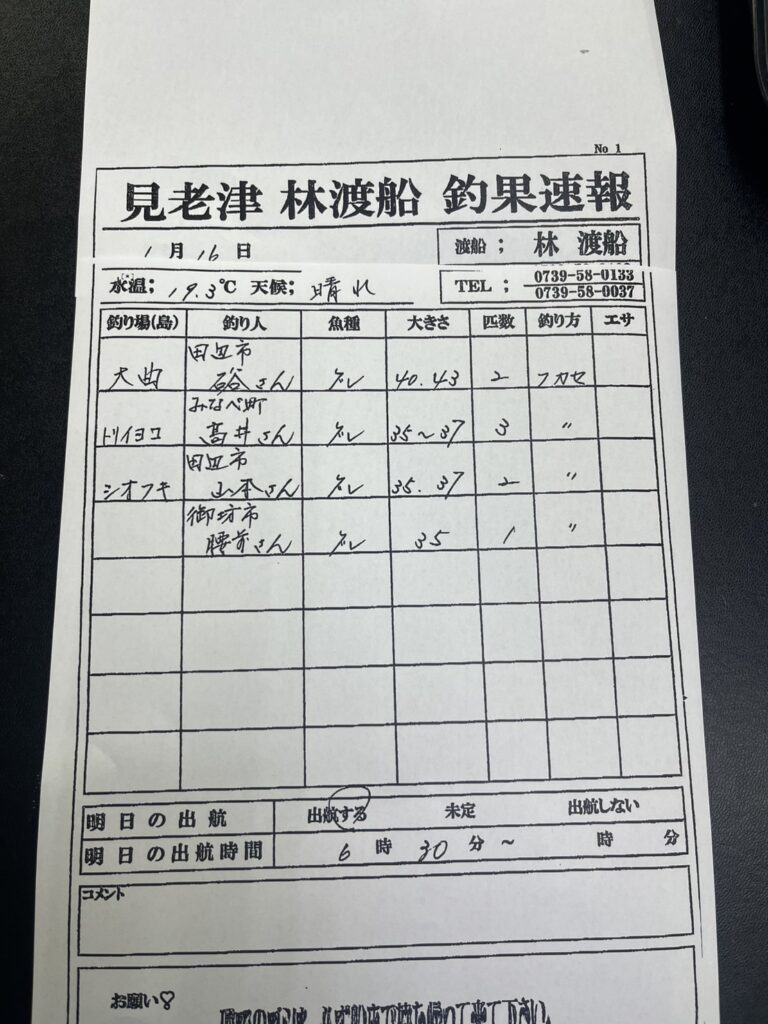 No 1
見老津 林渡船 釣果速報
1月16日
渡船; 林 渡船
水温; 19.3℃ 天候; 晴れ
TEL; 0739-58-0133
0739-58-0037
釣り場(島) 釣り人 魚種 大きさ 匹数 釣り方 エサ
田辺市
大曲 谷さん グレ 40.43 2 フカセ
みなべ町
トリイヨコ 高井さん グレ 35~37 3 〃
田辺市
シオフキ 山本さん グレ 35.37 2 〃
御坊市
腰前さん グレ 35 1 〃
明日の出航 出航する 未定 出航しない
明日の出航時間 6時30分~ 時 分
コメント
お願い♡